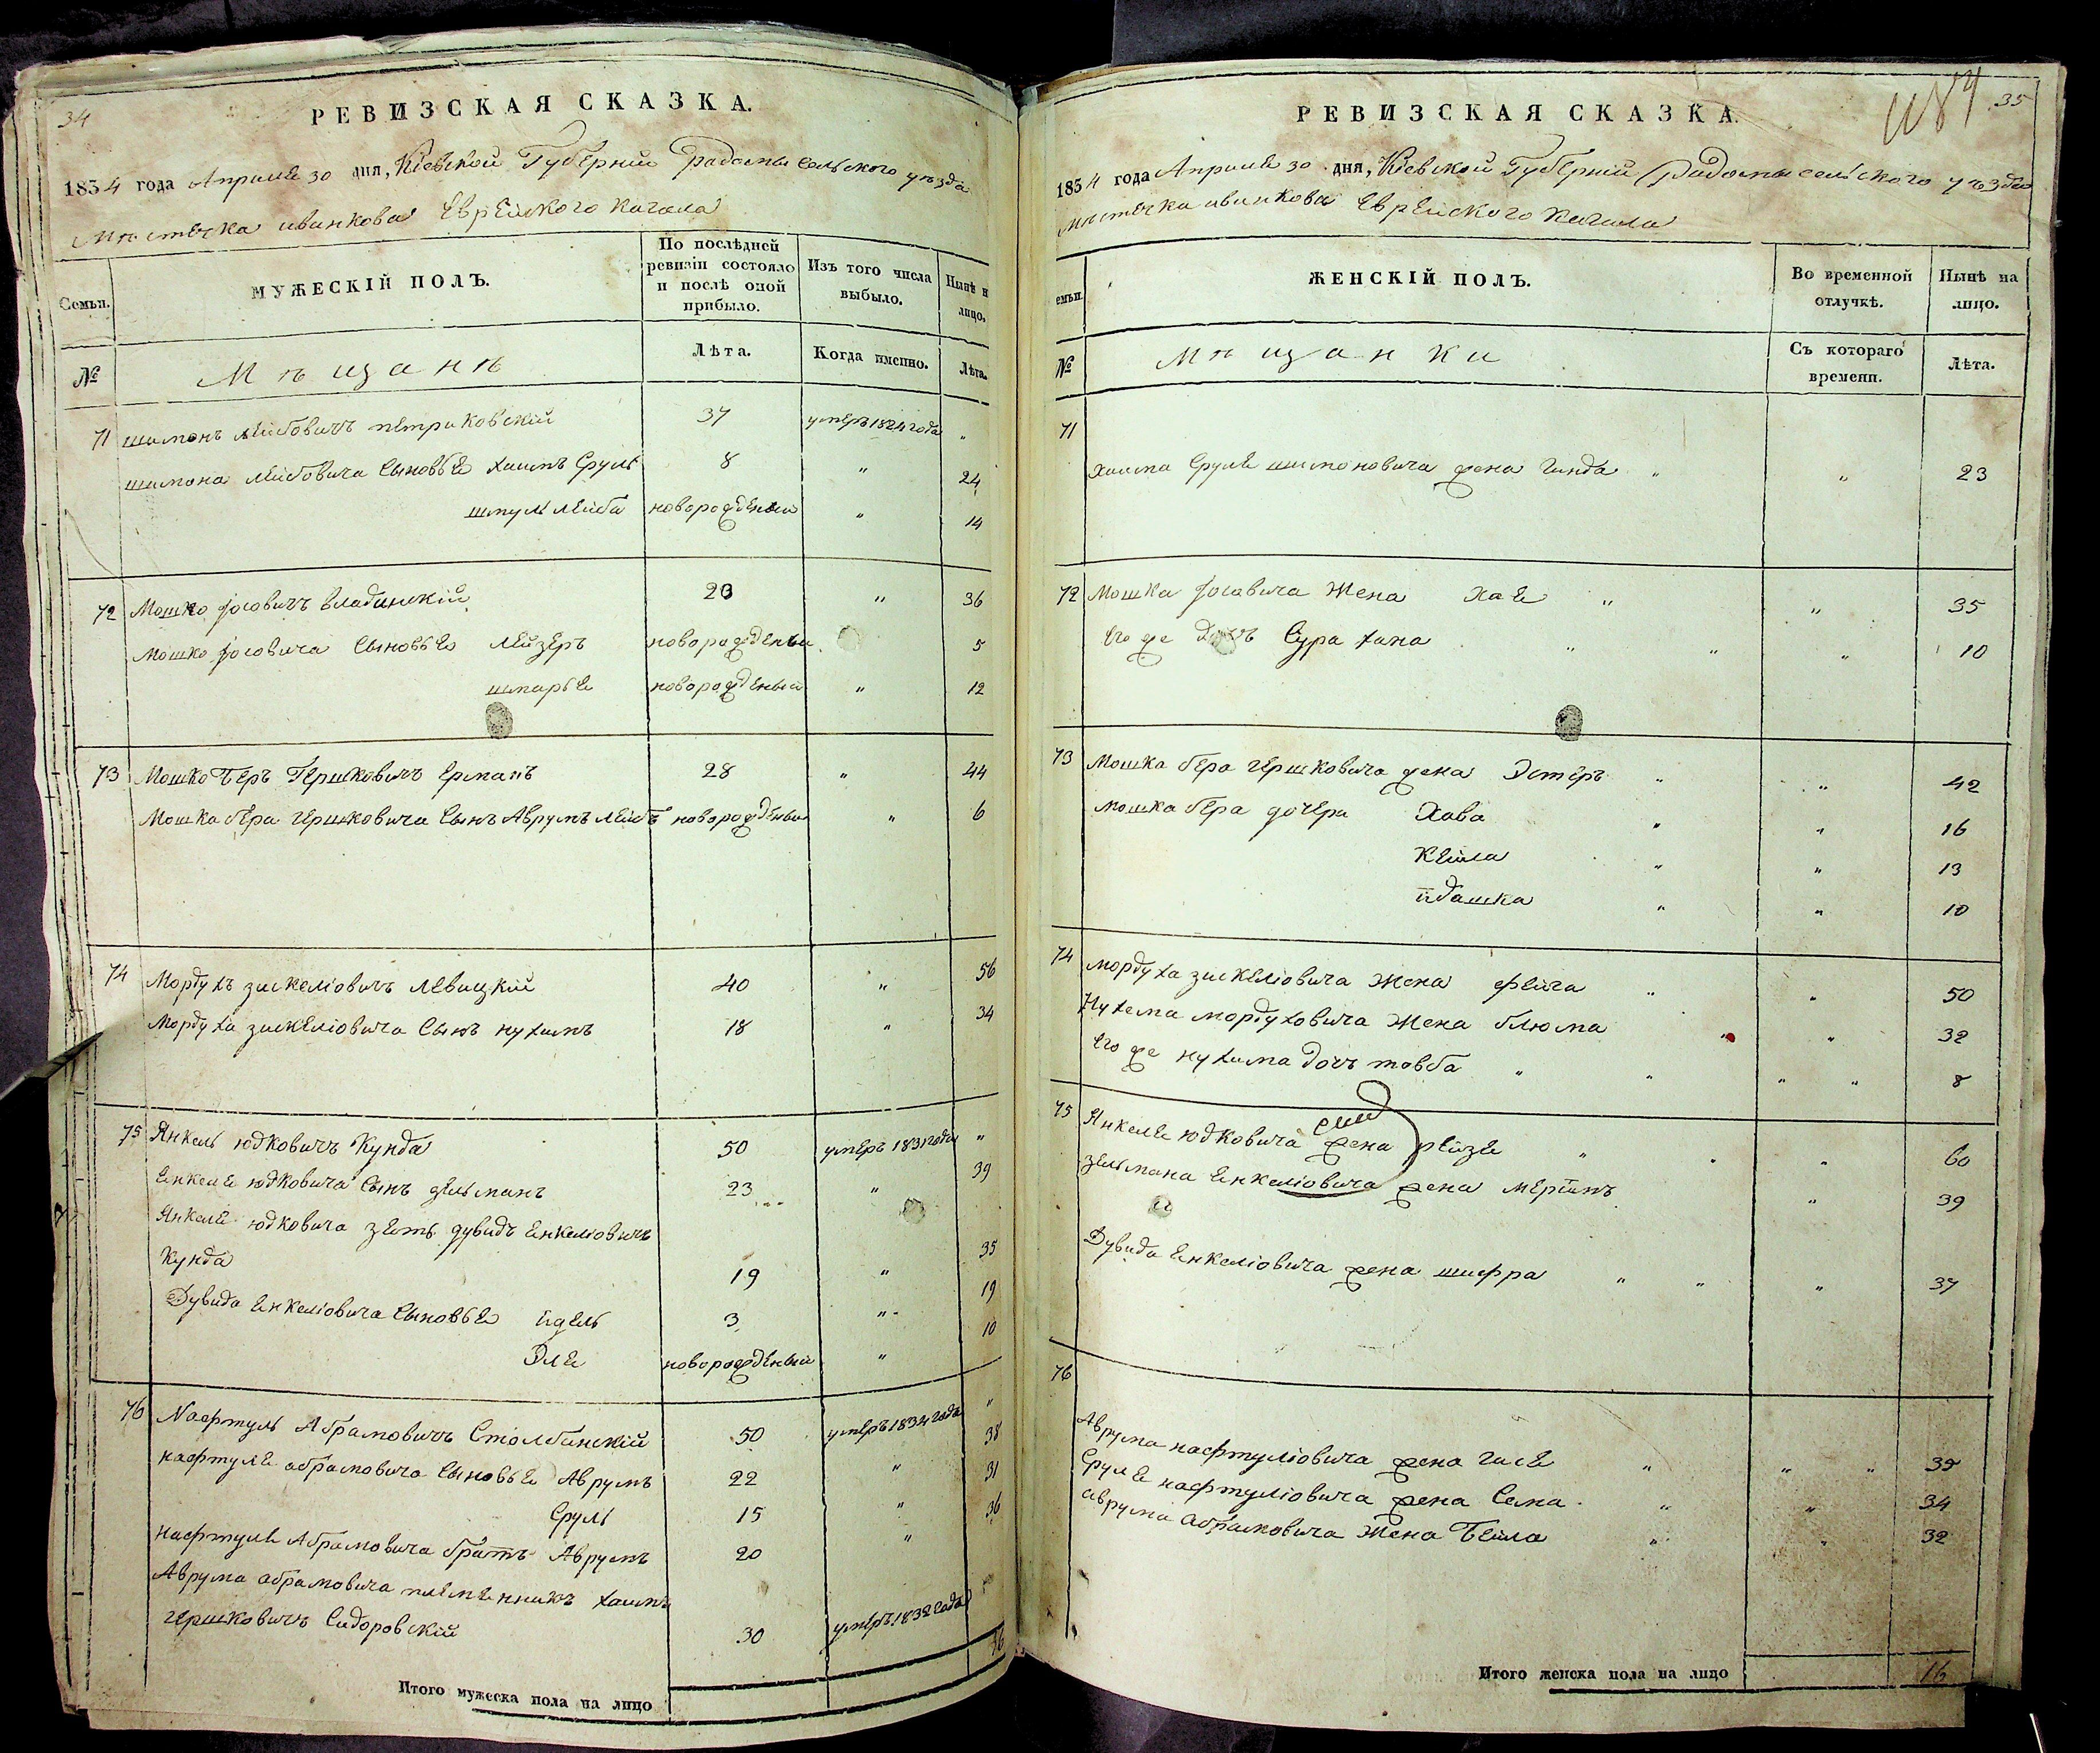 34
РЕВИЗСКАЯ СКАЗКА.
1834 года Апреля 30 дня, Кіевской Губерніи Радомысельского уезда
Мѣстечка иванкова Еврейского Кагала
Семьи.
МУЖЕСКІЙ ПОЛЪ.
По послѣдней ревизіи состояло и послѣ оной прибыло.
Изъ того числа выбыло.
Нынѣ н лицо.
№
Мѣщанѣ
Лѣта.
Когда именно.
Лѣта.
71 шимонъ лейбовичъ петриковскій 37 умеръ 1824 года "
шимона лейбовича сыновье хаимъ Сруль 8 " 24
шмуль лейба новорожденый " 14
72 Мошко іосовичъ 20 " 36
Мошко іосовича сыновье лейзеръ новорожденый 5
шмарье новорожденый " 12
73 Мошко Беръ Гершковичъ ерманъ 28 " 44
Мошка бера гершковича сынъ Аврумъ лейбъ новорожденый " 6
74 Мордухъ зискеліовичъ левицкій 40 " 56
Мордуха зискеліовича сынъ нухимъ 18 " 34
75 Янкель юдковичъ Кунда 50 умеръ 1831 года "
Енкеле юдковича сынъ зельманъ 23 " 39
Янкеле юдковича зеть дувидъ енкеліовичъ
Кунда 19 " 35
Дувида енкеліовича сыновье идель 3 " 19
Эле новорожденый " 10
76 Нафтуль Абрамовичъ Столбинскій 50 умеръ 1834 года "
нафтуле абрамовича сыновье Аврумъ 22 " 38
Сруль 15 " 31
нафтуле Абрамовича братъ Аврумъ 20 " 36
Аврума абрамовича племенникъ хаимъ
гершковичъ Сидоровскій 30 умеръ 1832 года "
Итого мужеска пола на лицо 16
35
РЕВИЗСКАЯ СКАЗКА.
1834 года Апреля 30 дня, Кіевской Губерній Радомысельского уезда
мѣстечка иванкова Еврейского Кагала
емьи.
ЖЕНСКІЙ ПОЛЪ.
Во временной отлучкѣ.
Нынѣ на лицо.
№
Мѣщанки
Съ котораго времени.
Лѣта.
71
хаима Сруле шимоновича жена гинда " " 23
72 Мошка іосовича Жена Хае " " 35
его же дочъ Сура хана " " " 10
73 Мошка бера гершковича жена Эстеръ " " 42
мошка бера дочери Хава " " 16
Кейла " " 13
йдашка " " 10
74 мордуха зискеліовича Жена фейга " " 50
Нухема мордуховича Жена блюма " " 32
его же нухима дочъ товба " " " " 8
75 Янкеле юдковича жена рейзе " " " 60
зельмана Енкеліовича жена меріямъ " 39
Дувида Енкеліовича жена шифра " " " 37
76
Аврума нафтуліовича жена гисе " " " 35
Сруле нафтуліовича жена Сима " " 34
аврума абрамовича Жена Бейла " " 32
Итого женска пола на лицо 16